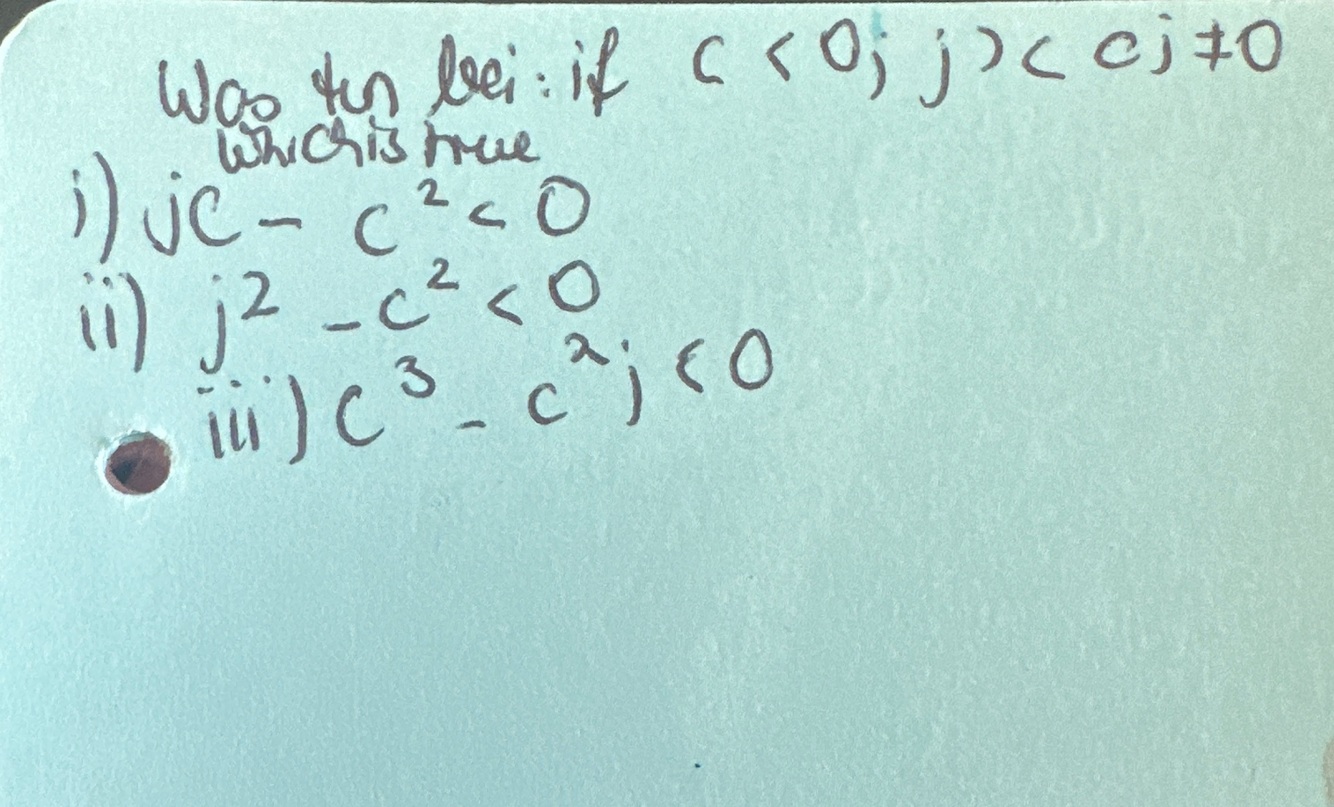 Was tun bei: if c < 0; j > c cj ≠ 0
which is true
i) jc - c² < 0
ii) j² - c² < 0
iii) c³ - c²j < 0